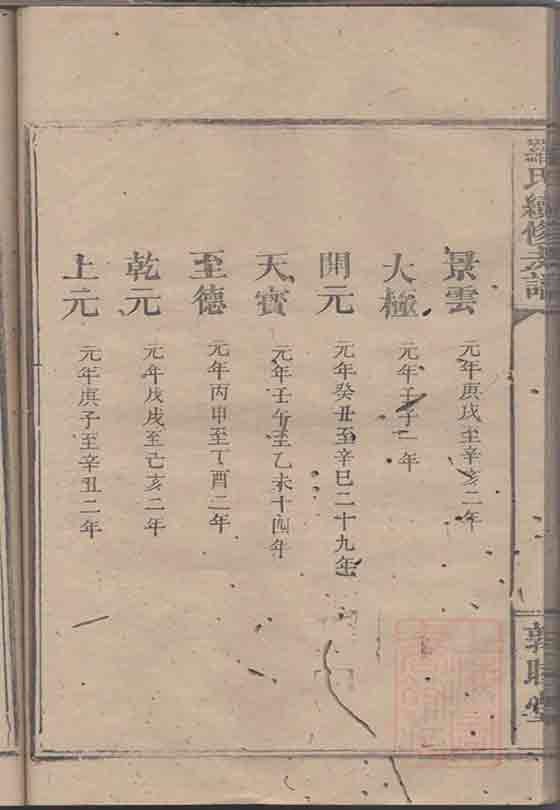 羅氏續修宗譜
景雲 元年庚戌至辛亥二年
太極 元年壬子一年
開元 元年癸丑至辛巳二十九年
天寶 元年壬午至乙未十四年
至德 元年丙申至丁酉二年
乾元 元年戊戌至己亥二年
上元 元年庚子至辛丑二年
敦睦堂